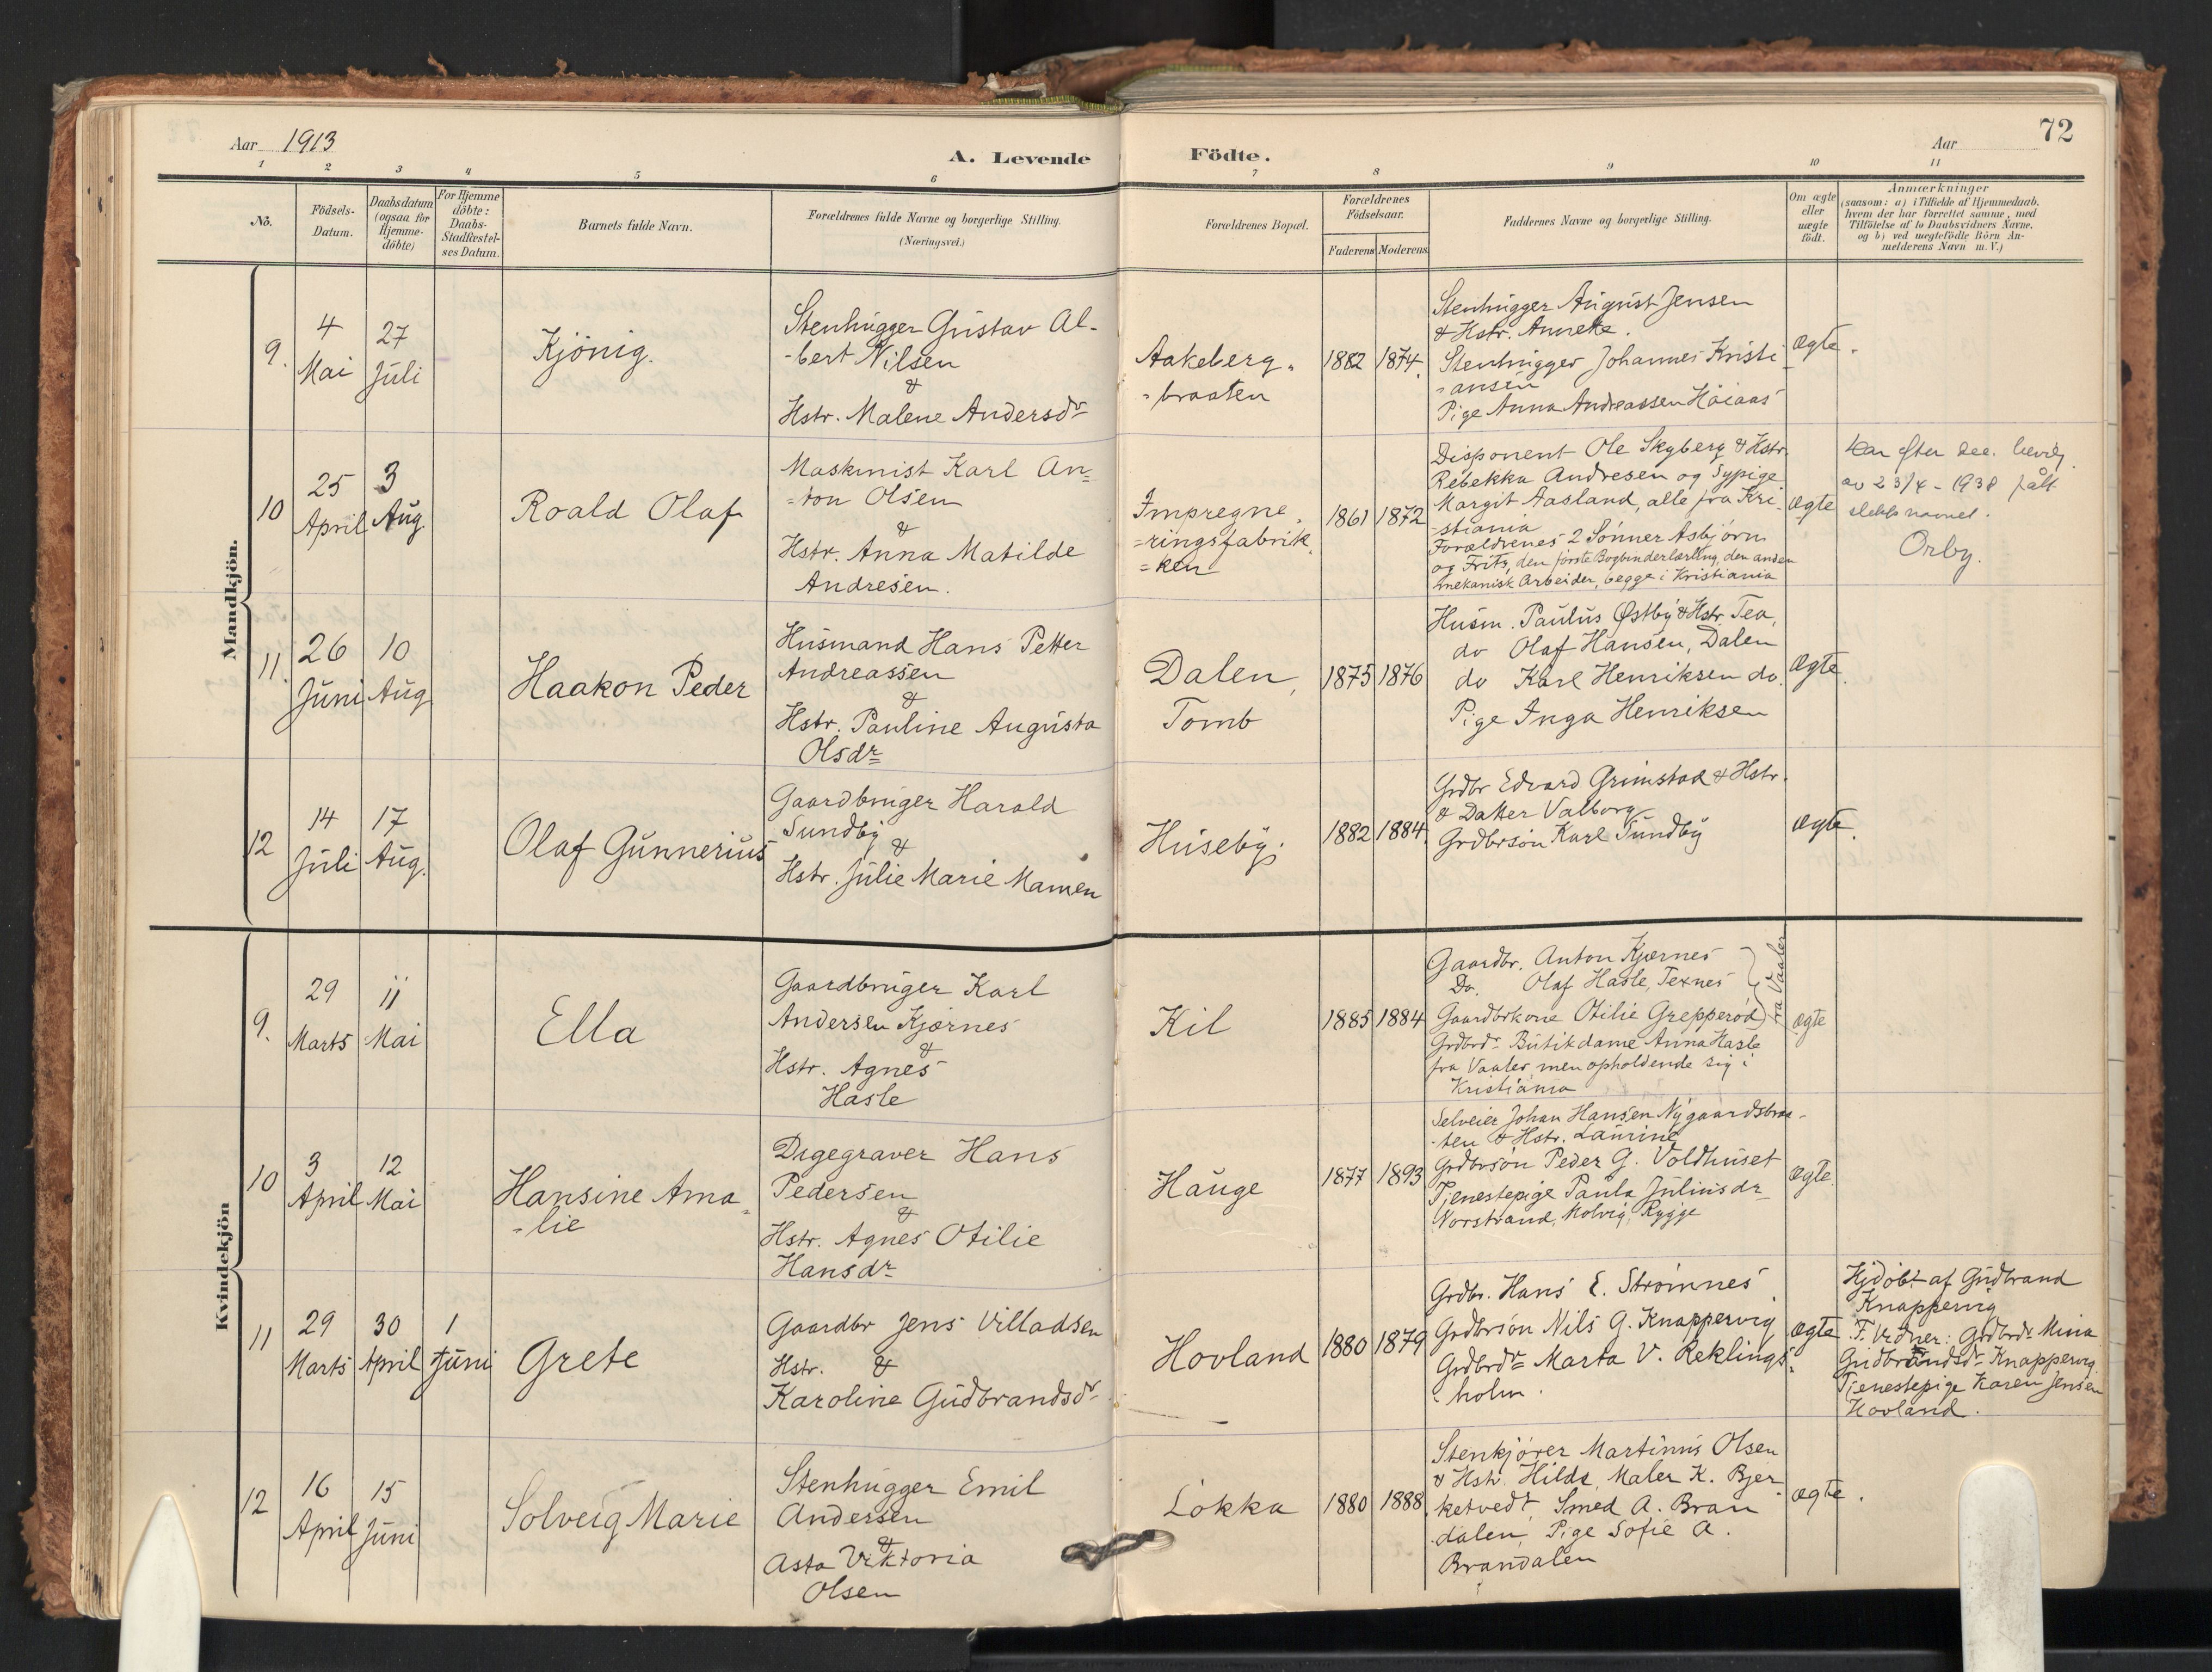 Aar 1913
A. Levende Födte.
Aar
72
1 2 3 4 5 6 7 8 9 10 11
No.
Födsels-
Datum.
Daabsdatum
(ogsaa for
Hjemme-
döbte)
For Hjemme
döbte:
Daabs-
Stadfæstel-
ses Datum.
Barnets fulde Navn.
Forældrenes fulde Navne og borgerlige Stilling.
(Næringsvei.)
Forældrenes Bopæl.
Forældrenes
Födselsaar.
Faderens Moderens
Faddernes Navne og borgerlige Stilling.
Om ægte
eller
uægte
födt.
Anmærkninger
(saasom: a) i Tilfælde af Hjemmedaab,
hvem der har forrettet samme, med
Tilföielse af to Daabsvidners Navne,
og b) ved uægtefödte Börn An-
melderens Navn m. V.)
Mandkjön.
9.
4
Mai
27
Juli
Kjönig.
Stenhugger Gustav Al-
-bert Nilsen
&
Hstr. Malene Andersdr
Aakeberg-
-braaten
1882 1874.
Stenhugger August Jensen
& Hstr. Annette.
Stenhugger Johannes Kristi-
-ansen
Pige Anna Andreassen Höiaas
Ægte.
10
25
April
3
Aug.
Roald Olaf
Maskinist Karl An=
=ton Olsen
&
Hstr. Anna Matilde
Andresen.
Impregne=
=ringsfabrik=
=ken
1861 1872
Disponent Ole Skyberg & Hstr.
Rebekka Andresen og Sypige
Margit Aasland, alle fra Kri-
-stiania
Forældrenes 2 Sønner Asbjørn
og Frits, den første Bogbinderlærling, den anden
mekanisk Arbeider, begge i Kristiania
Ægte
Har efter bevilg.
av 23/4 - 1938 fått
slektsnavnet.
Orby.
11.
26
Juni
10
Aug
Haakon Peder
Husmand Hans Petter
Andreassen
&
Hstr. Pauline Augusta
Olsdr
Dalen,
Tomb
1875 1876
Husm. Paulus Østby & Hstr. Tea,
do Olaf Hansen, Dalen
do Karl Henriksen do.
Pige Inga Henriksen
Ægte.
12
14
Juli
17
Aug.
Olaf Gunnerius
Gaardbruger Harald
Sundby
&
Hstr. Julie Marie Mamen
Huseby.
1882 1884.
Grdbr Edvard Grimstad & Hstr.
& Datter Valborg
Grdbrsön Karl Sundby
Ægte.
Kvindekjön
9.
29
Marts
11
Mai
Ella
Gaardbruger Karl
Andersen Kjærnes
&
Hstr. Agnes
Hasle
Kil
1885 1884
Gaardbr. Anton Kjærnes
Do. Olaf Hasle, Texnes
Gaardbrkone Otilie Grepperöd
fra Vaaler
Grdbrdr Butikdame Anna Hasle
fra Vaaler, men opholdende sig i
Kristiania
Ægte
10
3
April
12
Mai
Hansine Ama-
-lie
Digegraver Hans
Pedersen
&
Hstr. Agnes Otilie
Hansdr
Hauge
1877 1893
Selveier Johan Hansen Nygaardsbraa-
-ten & Hstr. Laurine
Grdbrsön Peder G. Voldhuset
Tjenestepige Paula Juliusdr
Norstrand, Molvig, Rygge
Ægte.
11
29
Marts
30
April
1
Juni
Grete
Gaardbr Jens Villadsen
Hstr. &
Karoline Gudbrandsdr
Hovland
1880 1879
Grdbr. Hans E. Strömnes
Grdbrsön Nils G. Knappervig
Grdbrdr Marta V. Reklings-
-holm.
Ægte
Hjdöbt af Gudbrand
Knappervig
T. Vidner: Grdbrdr Mina
Gudbrandsdr Knappervig
Tjenestepige Karen Jensen
Hovland.
12
16
April
15
Juni
Solveig Marie
Stenhugger Emil
Andersen
&
Asta Viktoria
Olsen
Lökka
1880 1888
Stenkjörer Martinus Olsen
& Hstr. Hilda, Maler K. Bjer-
ketvedt, Smed A. Bran
dalen, Pige Sofie A.
Brandalen
Ægte.